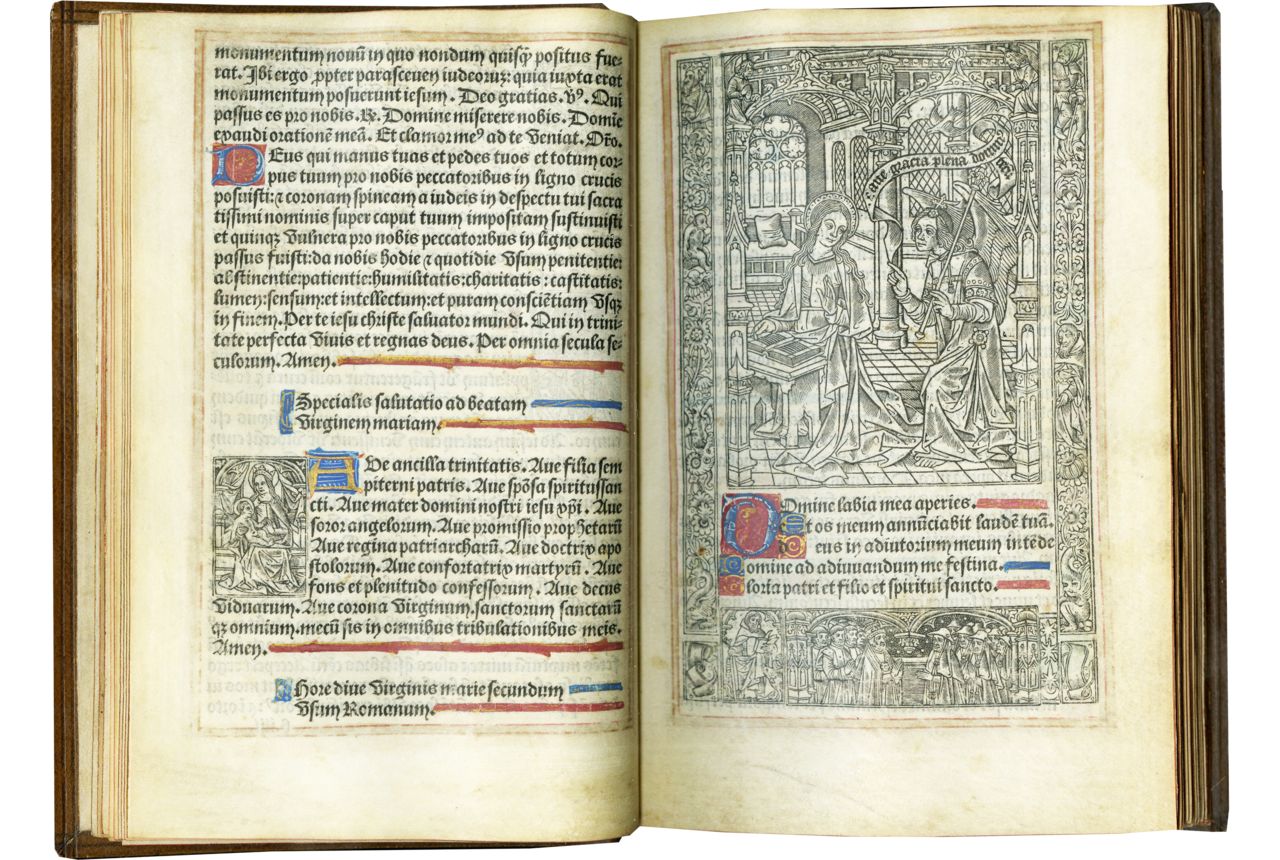 monumentum nouū in quo nondum quisqȝ positus fue-
rat. Ibi ergo ꝓpter parasceuen iudeorum: quia iuxta erat
monumentum posuerunt iesum. Deo gratias. ℣. Qui
passus es pro nobis. ℟. Domine miserere nobis. Domie
exaudi orationē meā. Et clamor meꝰ ad te veniat. Orō.
Deus qui manus tuas et pedes tuos et totum cor-
pus tuum pro nobis peccatoribus in ligno crucis
posuisti: ⁊ coronam spineam a iudeis in despectu tui sacra
tissimi nominis super caput tuum impositam sustinuisti
et quinqȝ vulnera pro nobis peccatoribus in ligno crucis
passus fuisti: da nobis hodie ⁊ quotidie vsum penitentie:
abstinentie: patientie: humilitatis: charitatis: castitatis:
lumen: sensum: et intellectum: et puram consciētiam vsqȝ
in finem. Per te iesu christe saluator mundi. Qui in trini-
tate perfecta viuis et regnas deus. Per omnia secula se-
culorum. Amen.
Specialis salutatio ad beatam
virginem mariam.
Aue ancilla trinitatis. Aue filia sem
piterni patris. Aue spōsa spiritussan
cti. Aue mater domini nostri iesu xp̄i. Aue
soror angelorum. Aue promissio prophetarū
Aue regina patriarcharū. Aue doctrix apo
stolorum. Aue confortatrix martyrū. Aue
fons et plenitudo confessorum. Aue decus
viduarum. Aue corona virginum. sanctorum sanctarū
qȝ omnium. mecū sis in omnibus tribulationibus meis.
Amen.
Hore diue virginis marie secundum
vsum Romanum.
aue gracia plena dominꝰ
Domine labia mea aperies.
Et os meum annūciabit laudē tuā.
deus in adiutorium meum intēde
omine ad adiuuandum me festina.
loria patri et filio et spiritui sancto.